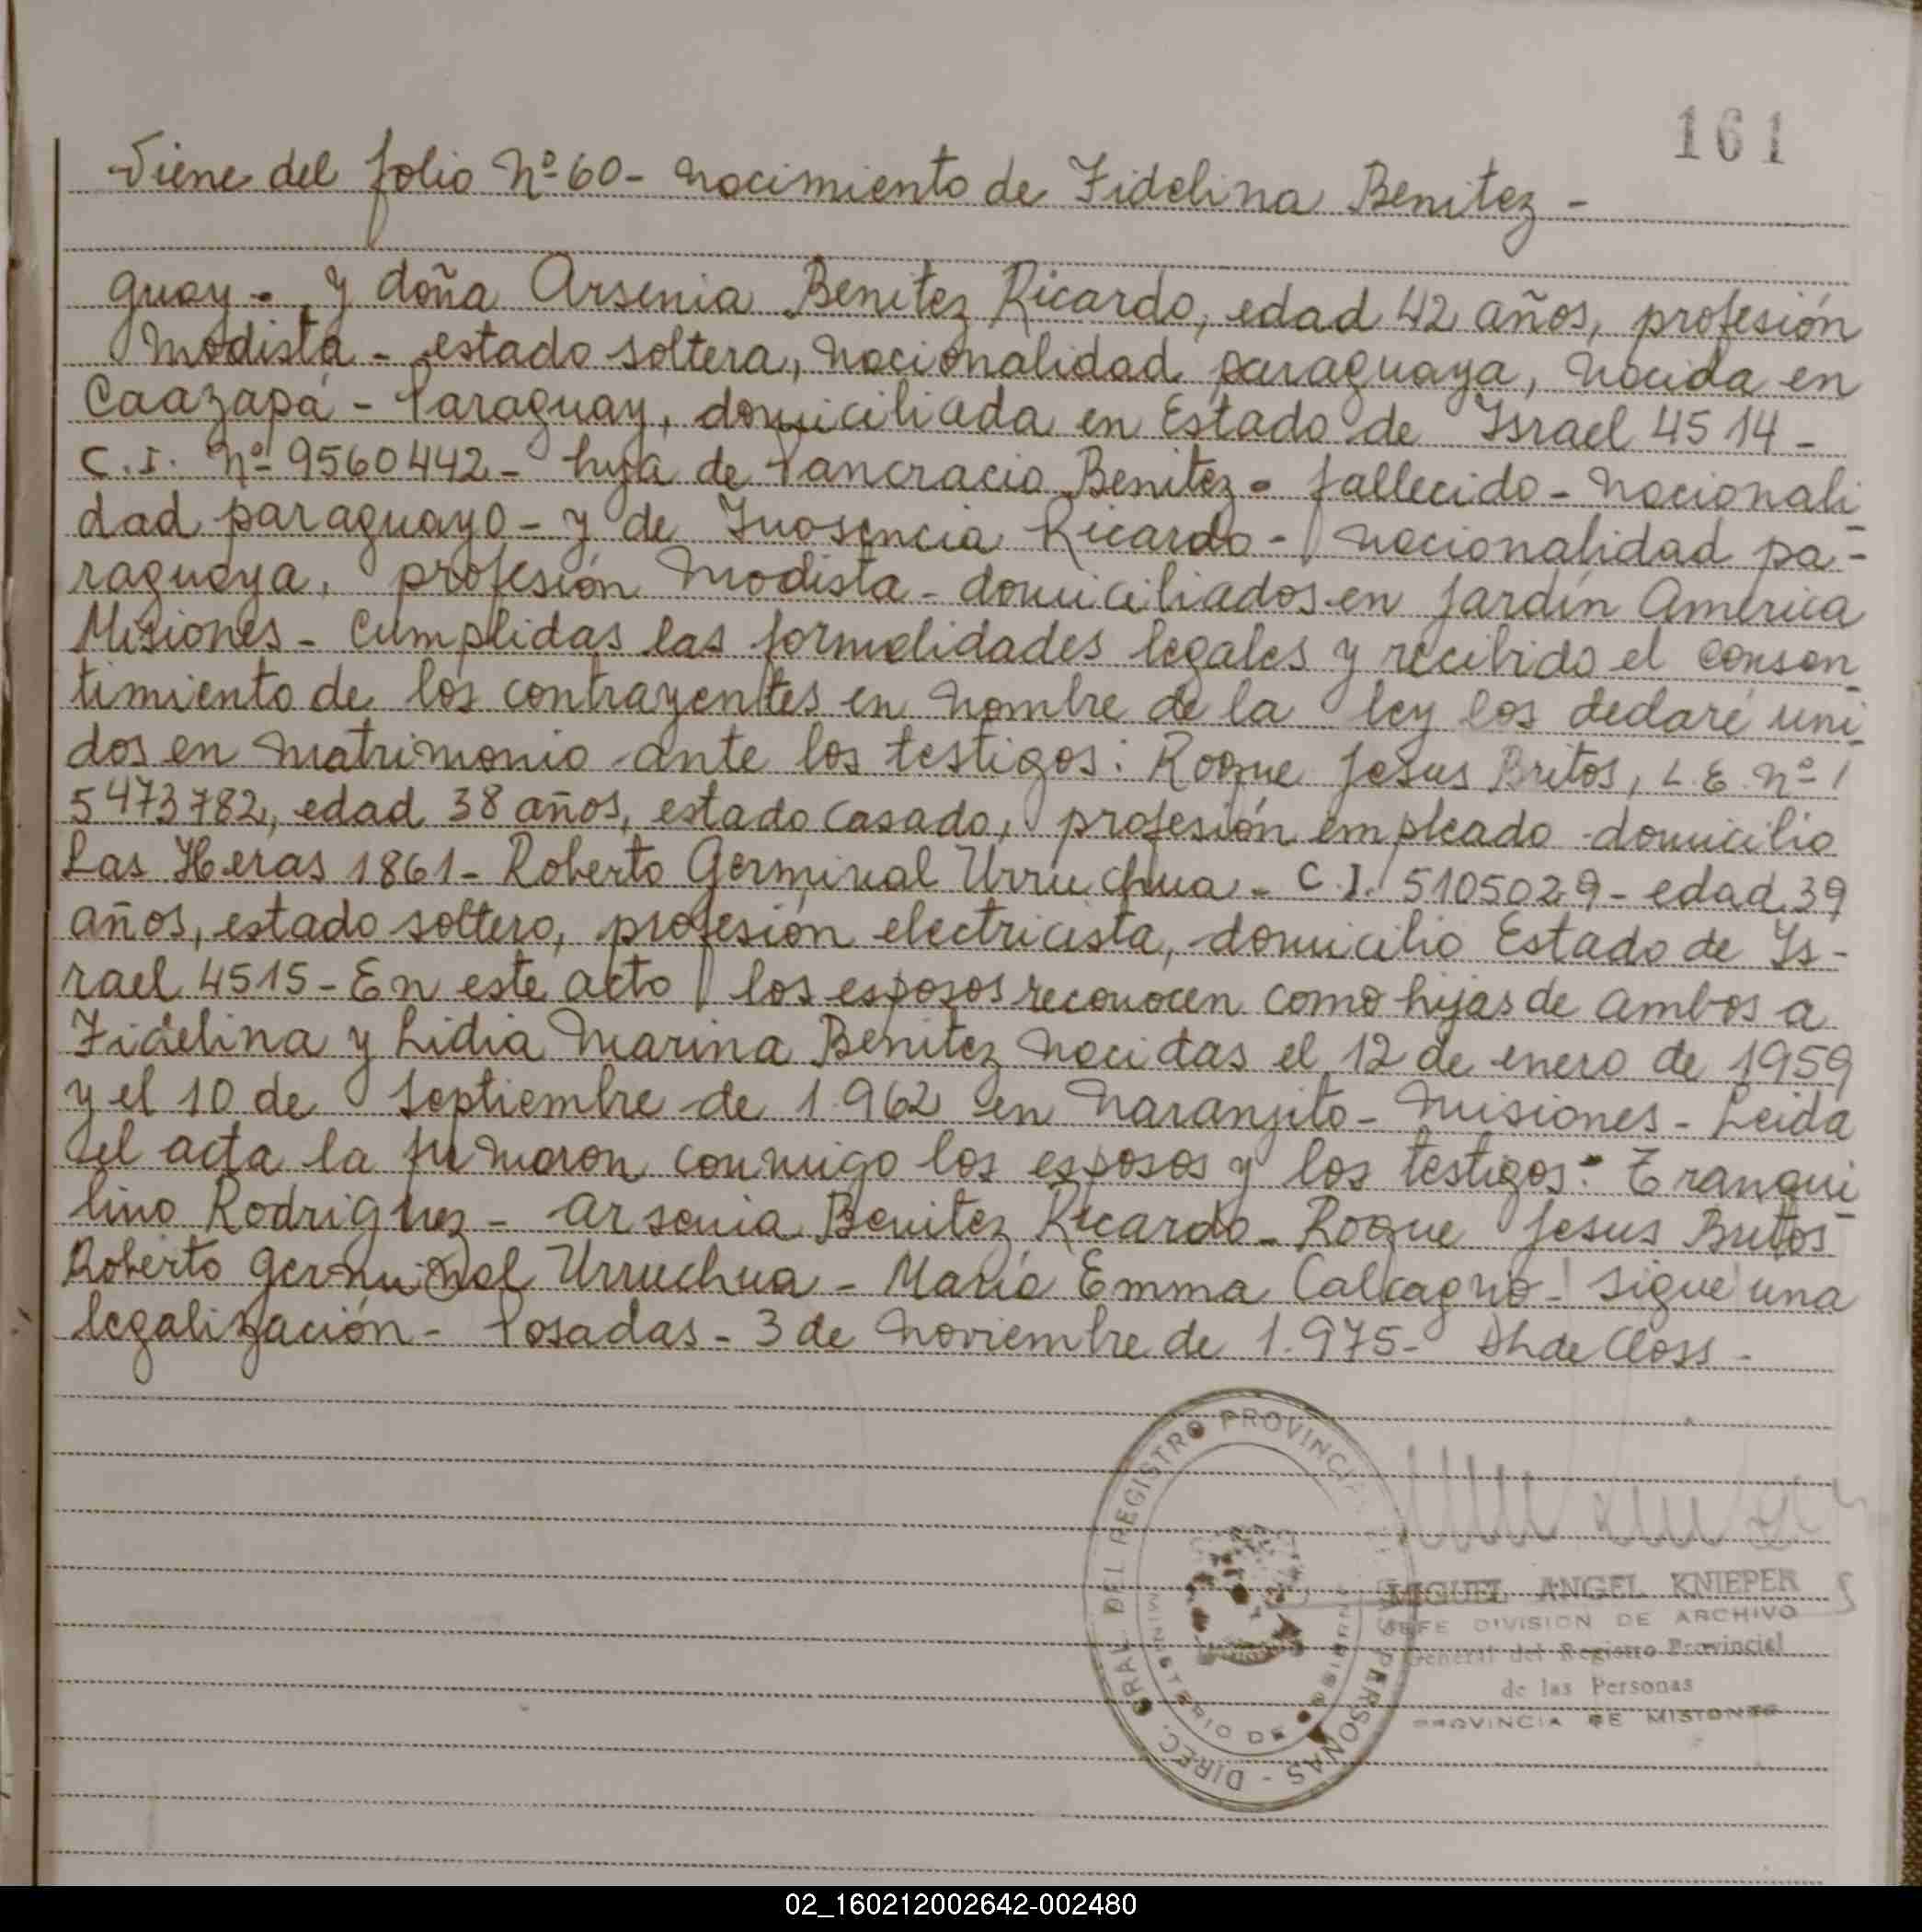 161
Viene del folio Nº 60 - nacimiento de Fidelina Benitez -
guay - y doña Arsenia Benitez Ricardo, edad 42 años, profesión
modista - estado soltera, nacionalidad paraguaya, nacida en
Caazapá - Paraguay, domiciliada en Estado de Israel 4514 -
C.I. Nº 9560442 - hija de Pancracio Benitez - fallecido - nacionali
dad paraguayo - y de Inosencia Ricardo - nacionalidad pa-
raguaya, profesión modista - domiciliados en Jardín América
Misiones - Cumplidas las formalidades legales y recibido el consen
timiento de los contrayentes en nombre de la ley los declaré uni
dos en matrimonio ante los testigos: Roque Jesus Britos, L.E. Nº
5473782, edad 38 años, estado casado, profesión empleado domicilio
Las Heras 1861 - Roberto Germinal Urruchua - C.I. 5105029 - edad 39
años, estado soltero, profesión electricista, domicilio Estado de Is-
rael 4515 - En este acto los esposos reconocen como hijas de ambos a
Fidelina y Lidia Marina Benitez nacidas el 12 de enero de 1959
y el 10 de Septiembre de 1.962 en Naranjito - Misiones - Leida
el acta la firmaron conmigo los esposos y los testigos: Tranqui
lino Rodriguez - Arsenia Benitez Ricardo - Roque Jesus Britos
Roberto Germinal Urruchua - María Emma Calcagno - Sigue una
legalización - Posadas - 3 de Noviembre de 1.975 - de Closs -
DIREC. GRAL. DEL REGISTRO PROVINCIAL PERSONAS -
MINISTERIO DE
MIGUEL ANGEL KNIEPER
JEFE DIVISION DE ARCHIVO
General del Registro Provincial
de las Personas
PROVINCIA DE MISIONES
02_160212002642-002480